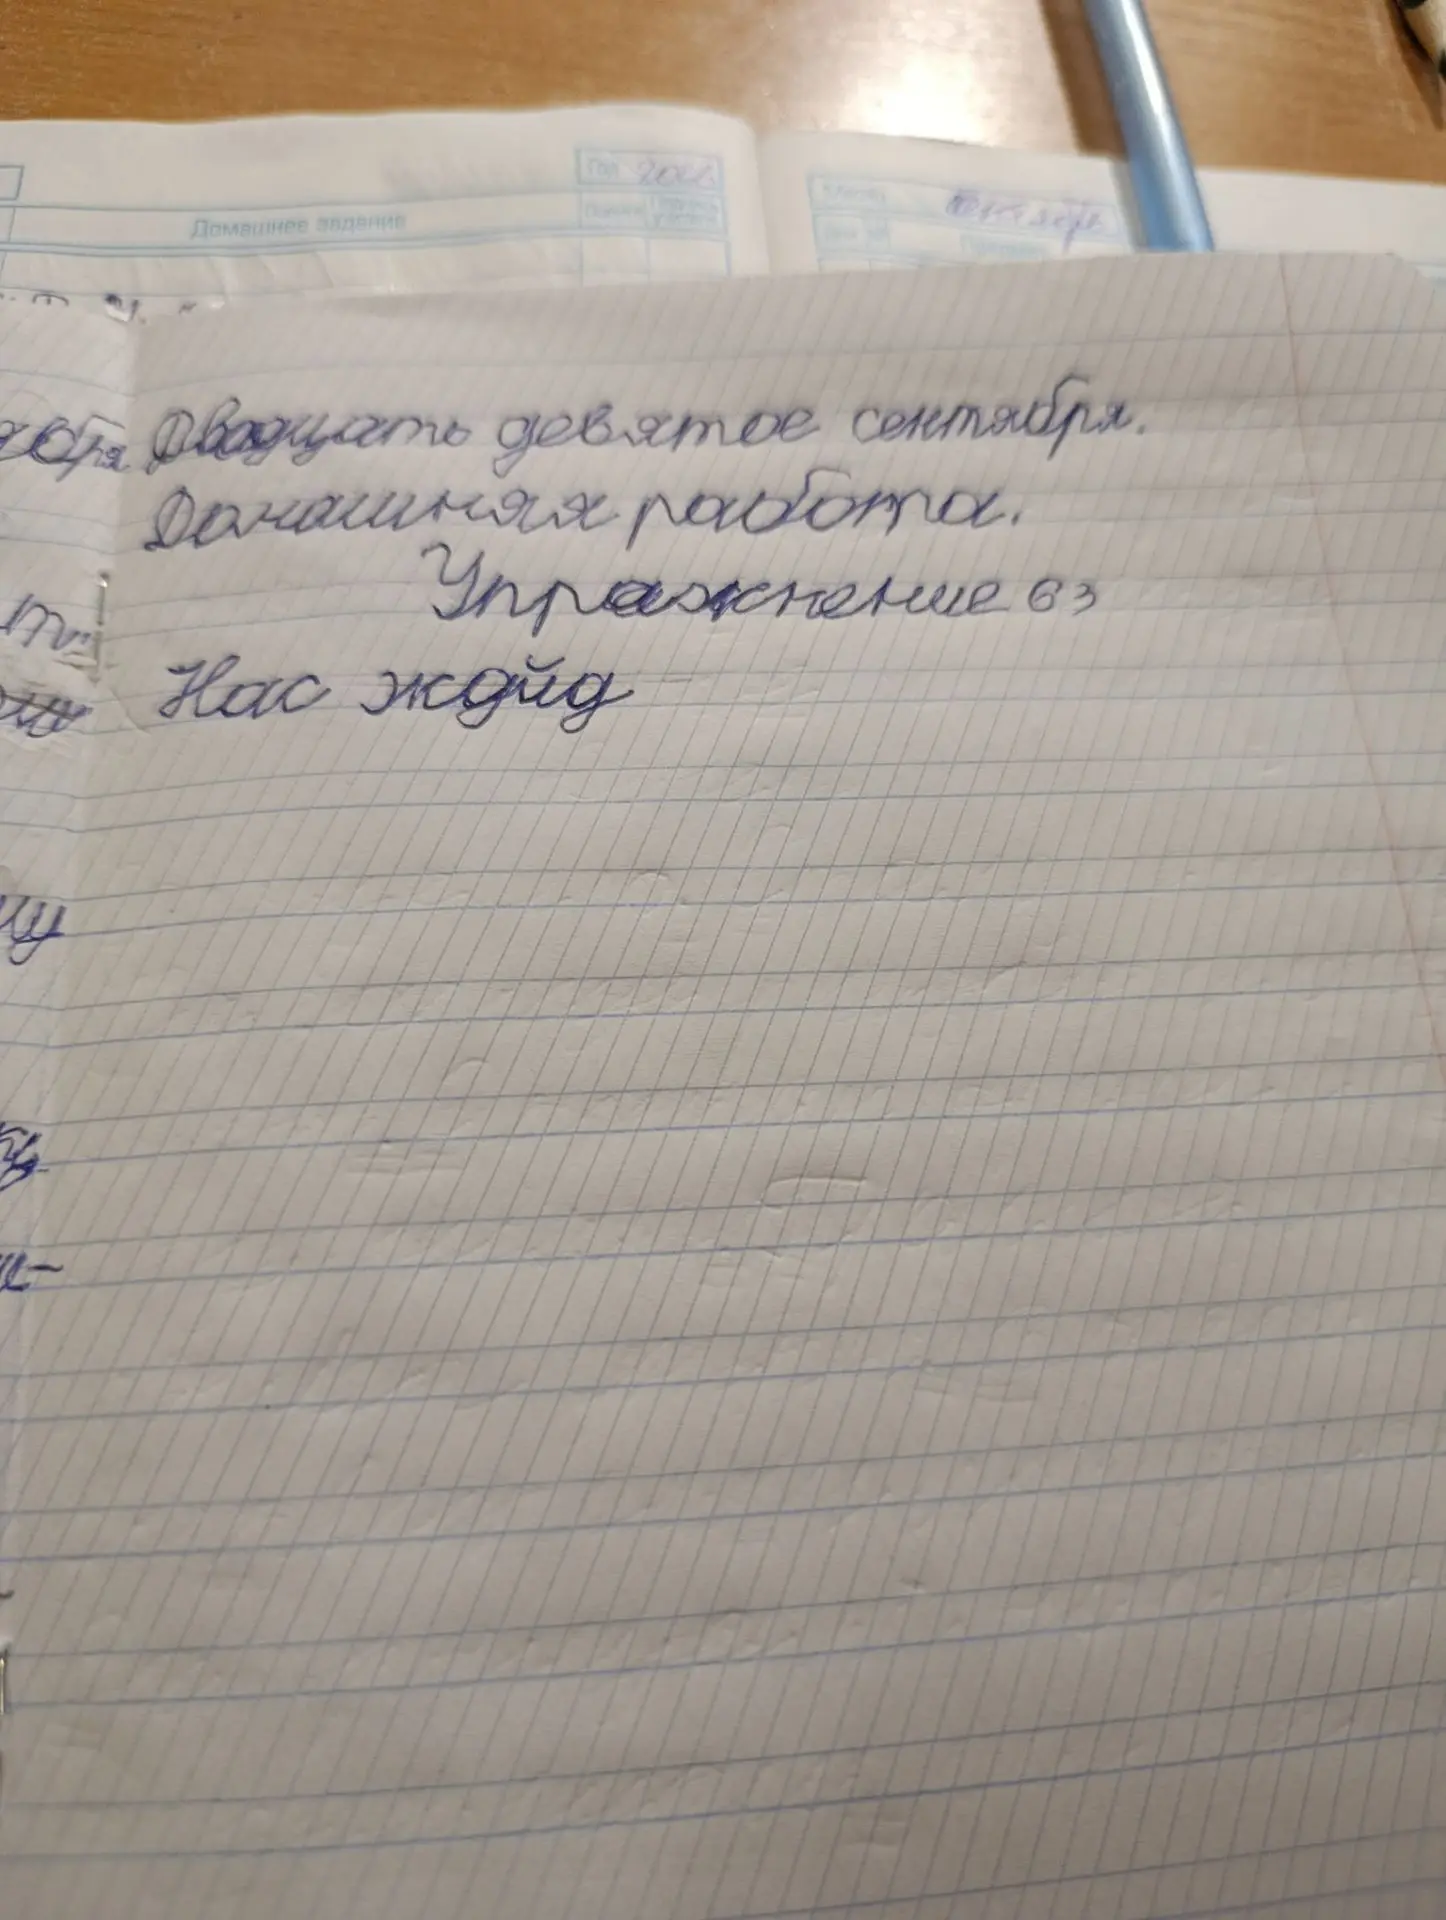 Домашнее задание
Год
Месяц сентябрь
Двадцать девятое сентября.
Домашняя работа.
Упражнение 63
Нас ждйд